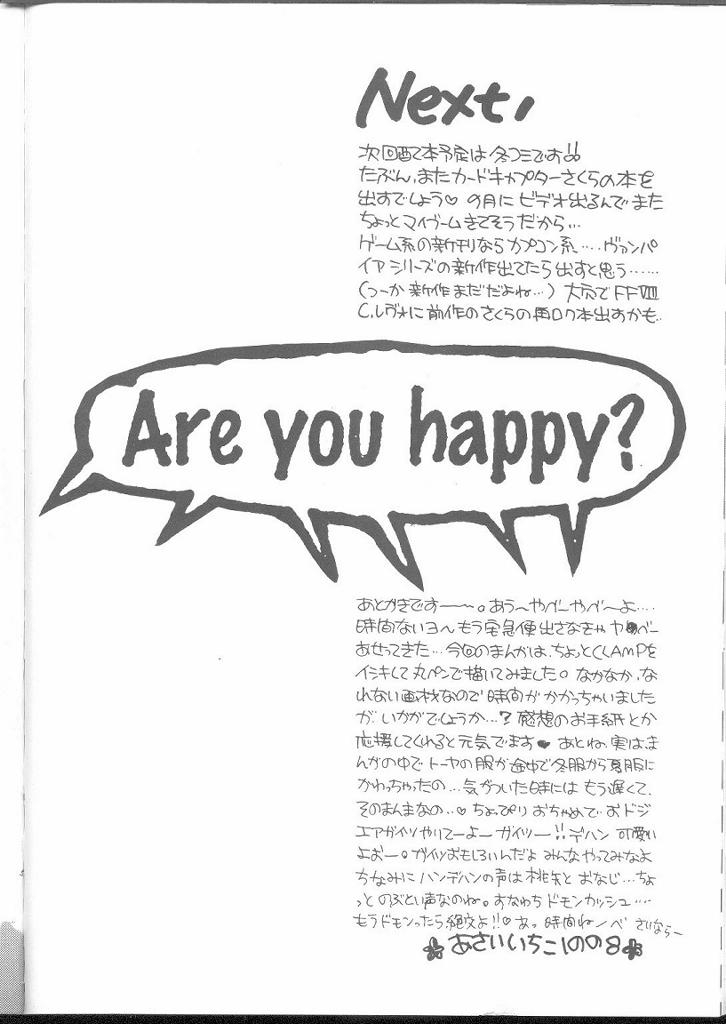 Next,
次回配本予定は冬コミです!!
たぶん、またカードキャプターさくらの本を
出すでしょう♡ の月に ビデオ出るんで また
ちょっとマイブームきてそうだから…
ゲーム系の新刊なら カプコン系……ヴァンパ
イア シリーズの新作出てたら出すと思う……
(つーか 新作 まだだよね…) 大穴で FFⅧ
C.レヴォに前作のさくらの再ロク本出すかも..
Are you happy?
あとがきです〜〜。あう〜やべーやべーよ….
時間ないヨ〜 もう宅急便出さなきゃ ヤベー
あせってきた…今回のまんがは、ちょっとCLAMPを
イシキして 丸ペンで描いてみました。なかなか、な
れない画材なので 時間が かかっちゃいました
が いかがでしょうか…? 感想のお手紙とか
応援してくれると元気でます♥ あとね、実は、ま
んがの中で トーヤの服が途中で冬服から夏服に
かわっちゃったの…気がついた時には もう遅くて、
そのまんまなの…♡ ちょっぴり おちゃめで おドジ
エアガイツ やりてーよー ガイツー!! デハン 可愛い
よおー。ガイツおもしろいんだよ みんなやってみなよ
ちなみに ハンデハンの声は 桃矢と おなじ…ちょ
っと のぶとい声なのね。すなわち ドモンカッシュ….
もうドモンったら 絶交よ!!♡ あっ 時間ねーべ さいなら〜
あさいいちこ1998